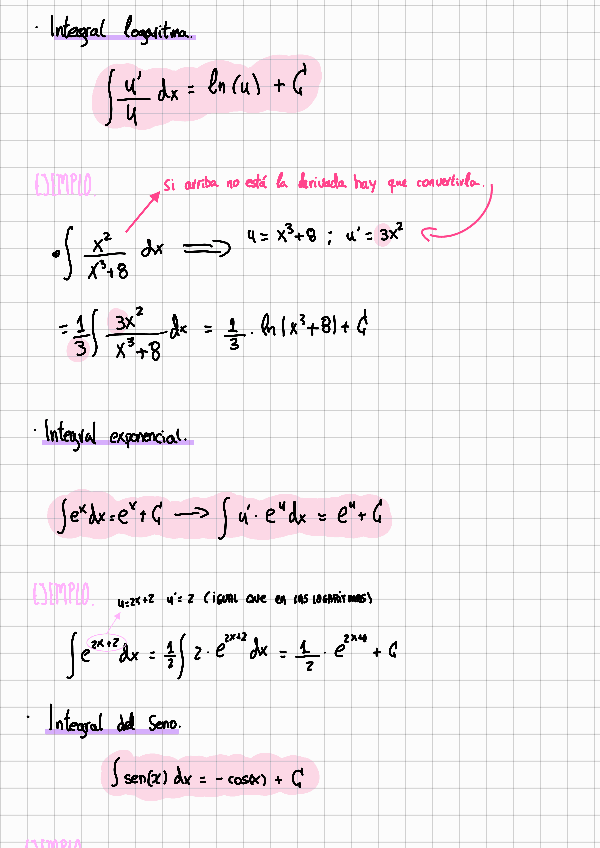 · Integral logaritma.
∫ u'/u dx = ln(u) + C
EJEMPLO.
Si arriba no está la derivada hay que convertirla.
• ∫ x²/x³+8 dx ⟹ u = x³+8 ; u' = 3x²
= 1/3 ∫ 3x²/x³+8 dx = 1/3 · ln(x³+8) + C
· Integral exponencial.
∫ eˣ dx = eˣ + C → ∫ u' · eᵘ dx = eᵘ + C
EJEMPLO.
u=2x+2 u'= 2 (IGUAL QUE EN LAS LOGARITMAS)
∫ e^2x+2 dx = 1/2 ∫ 2 · e^2x+2 dx = 1/2 · e + C
· Integral del Seno.
∫ sen(x) dx = - cos(x) + C
EJEMPLO